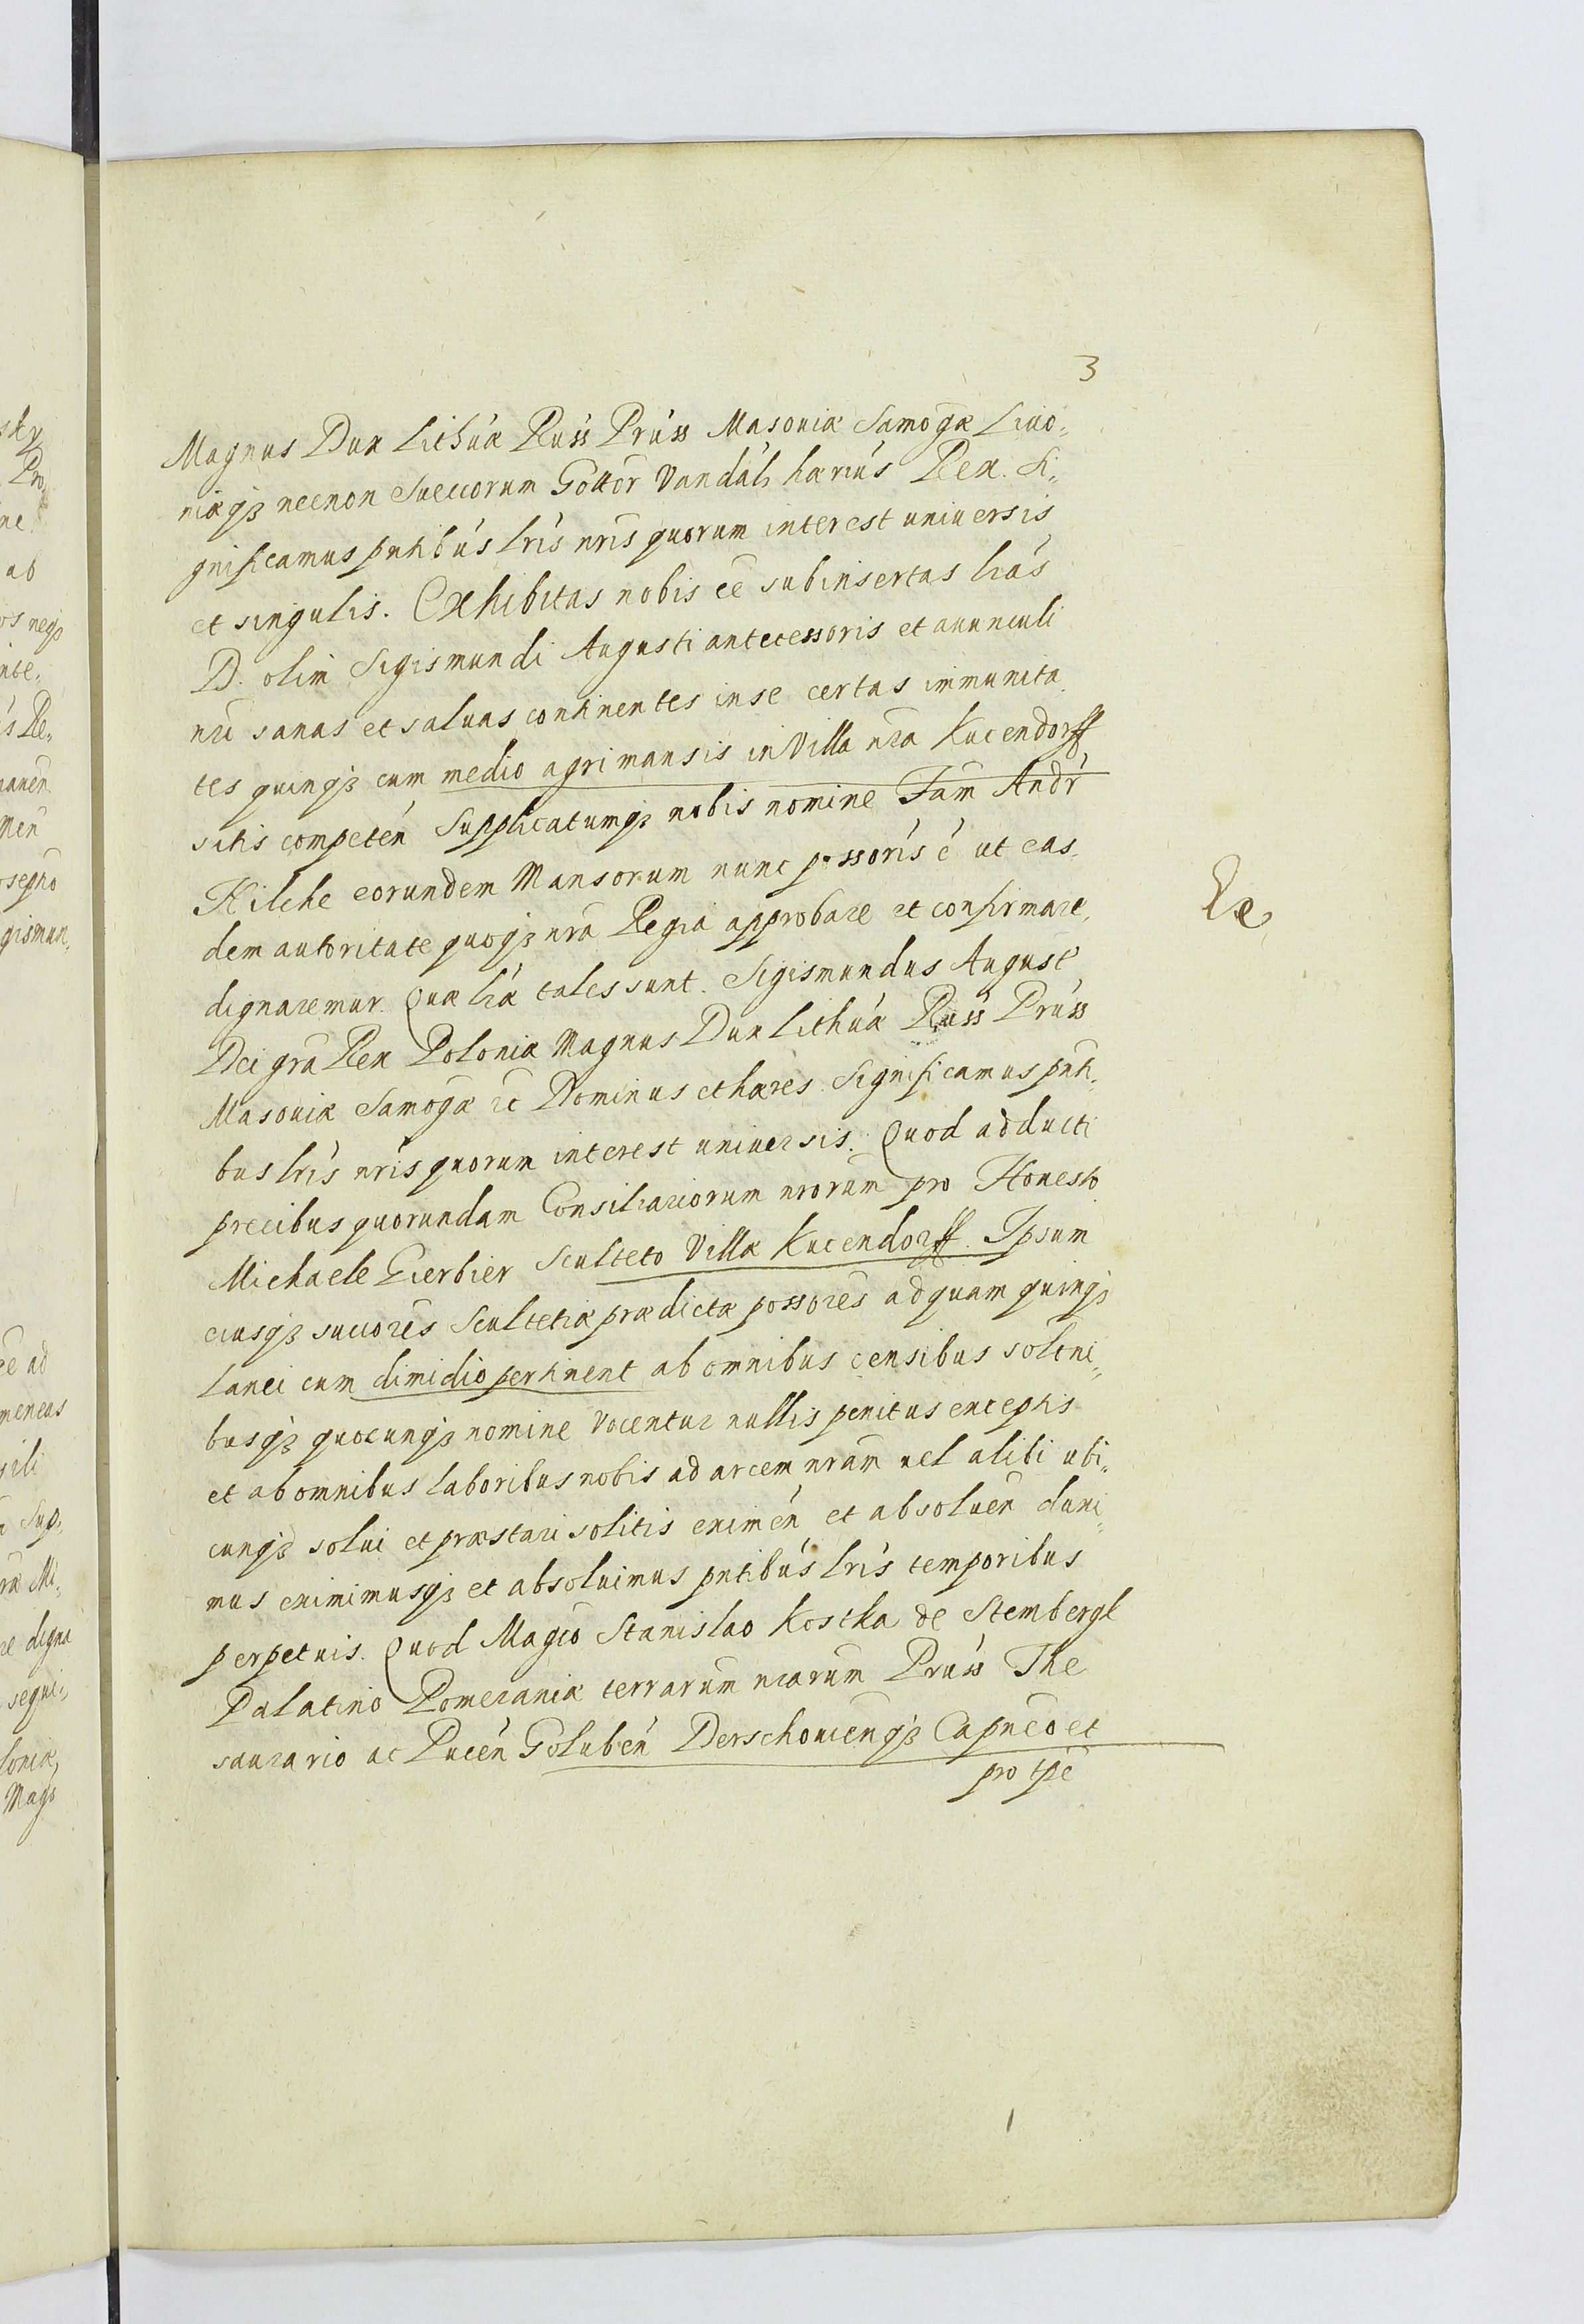 3
Magnus Dux Lithuæ Russ Pruss Masoviæ Samogæ Livo„
niæqꝫ necnon Suecorum Gottor Vandal, hærius Rex. Si„
gnificamus pntibus lris nris quorum interest universis
et singulis. Exhibitas nobis ee subinsertas lras
D. olim Sigismundi Augusti antecessoris et avunculi
nri sanas et salvas continentes in se certas immunita„
tes quinqꝫ cum medio agri mansis in Villa nra Kucendorff
sitis competen Supplicatumqꝫ nobis nomine Fam Andr
Hilche eorundem Mansorum nunc possoris é ut eas„
dem autoritate quoqꝫ nra Regia approbare et confirmare
dignaremur. Quæ lræ tales sunt. Sigismundus August
Dei gra Rex Poloniæ Magnus Dux Lithuæ Russ Pruss
Masoviæ Samogæ ꝛc Dominus et hæres Significamus pnti„
bus lris nris quorum interest universis. Quod adducti
precibus quorundam Consiliariorum nrorum pro Honesto
Michaele Gierbier Sculteto Villæ Kucendorff. Ipsum
eiusqꝫ succores Scultetiæ prædictæ possores ad quam quinqꝫ
lanei cum dimidio pertinent ab omnibus censibus solení„
busqꝫ quocunqꝫ nomine vocentur nullis penitus exceptis
et ab omnibus laboribus nobis ad arcem nram vel alibi ubi„
cunqꝫ solvi et præstari solitis eximen et absolven duxi„
mus eximimusqꝫ et absolvimus pntibus lris temporibus
perpetuis. Quod Magco Stanislao Kostka de Stembergk
Palatino Pomeraniæ terrarum nrarum Pruss The„
saurario ac Pucen Goluben Derschovienqꝫ Capneo et
pro tpe